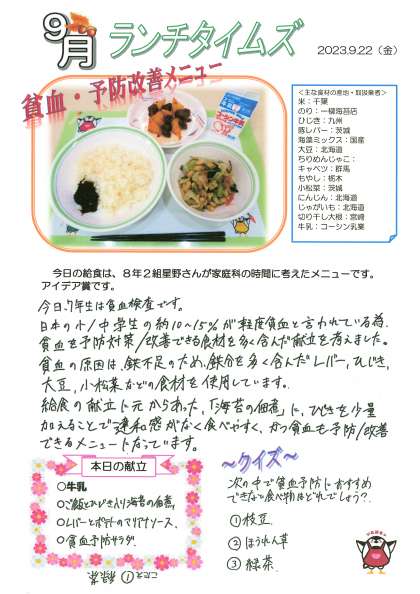 9月 ランチタイムズ
2023.9.22（金）
貧血・予防改善メニュー
＜主な食材の産地・取扱業者＞
米：千葉
のり：一柳海苔店
ひじき：九州
豚レバー：茨城
海藻ミックス：国産
大豆：北海道
ちりめんじゃこ：
キャベツ：群馬
もやし：栃木
小松菜：茨城
にんじん：北海道
じゃがいも：北海道
切り干し大根：宮崎
牛乳：コーシン乳業
今日の給食は、８年２組星野さんが家庭科の時間に考えたメニューです。
アイデア賞です。
今日、7年生は貧血検査です。
日本の小/中学生の約10～15%が軽度貧血と言われている為、
貧血を予防対策/改善できる食材を多く含んだ献立を考えました。
貧血の原因は、鉄不足のため、鉄分を多く含んだレバー、ひじき、
大豆、小松菜などの食材を使用しています。
給食の献立に元からあった、「海苔の佃煮」に、ひじきを少量
加えることで違和感がなく食べやすく、かつ貧血も予防/改善
できるメニューとなっています。
本日の献立
○牛乳
○ご飯とひじき入り海苔の佃煮
○レバーとポテトのマリアナソース
○貧血予防サラダ
～クイズ～
次の中で貧血予防におすすめ
できない食べ物はどれでしょう？
①枝豆
②ほうれん草
③緑茶